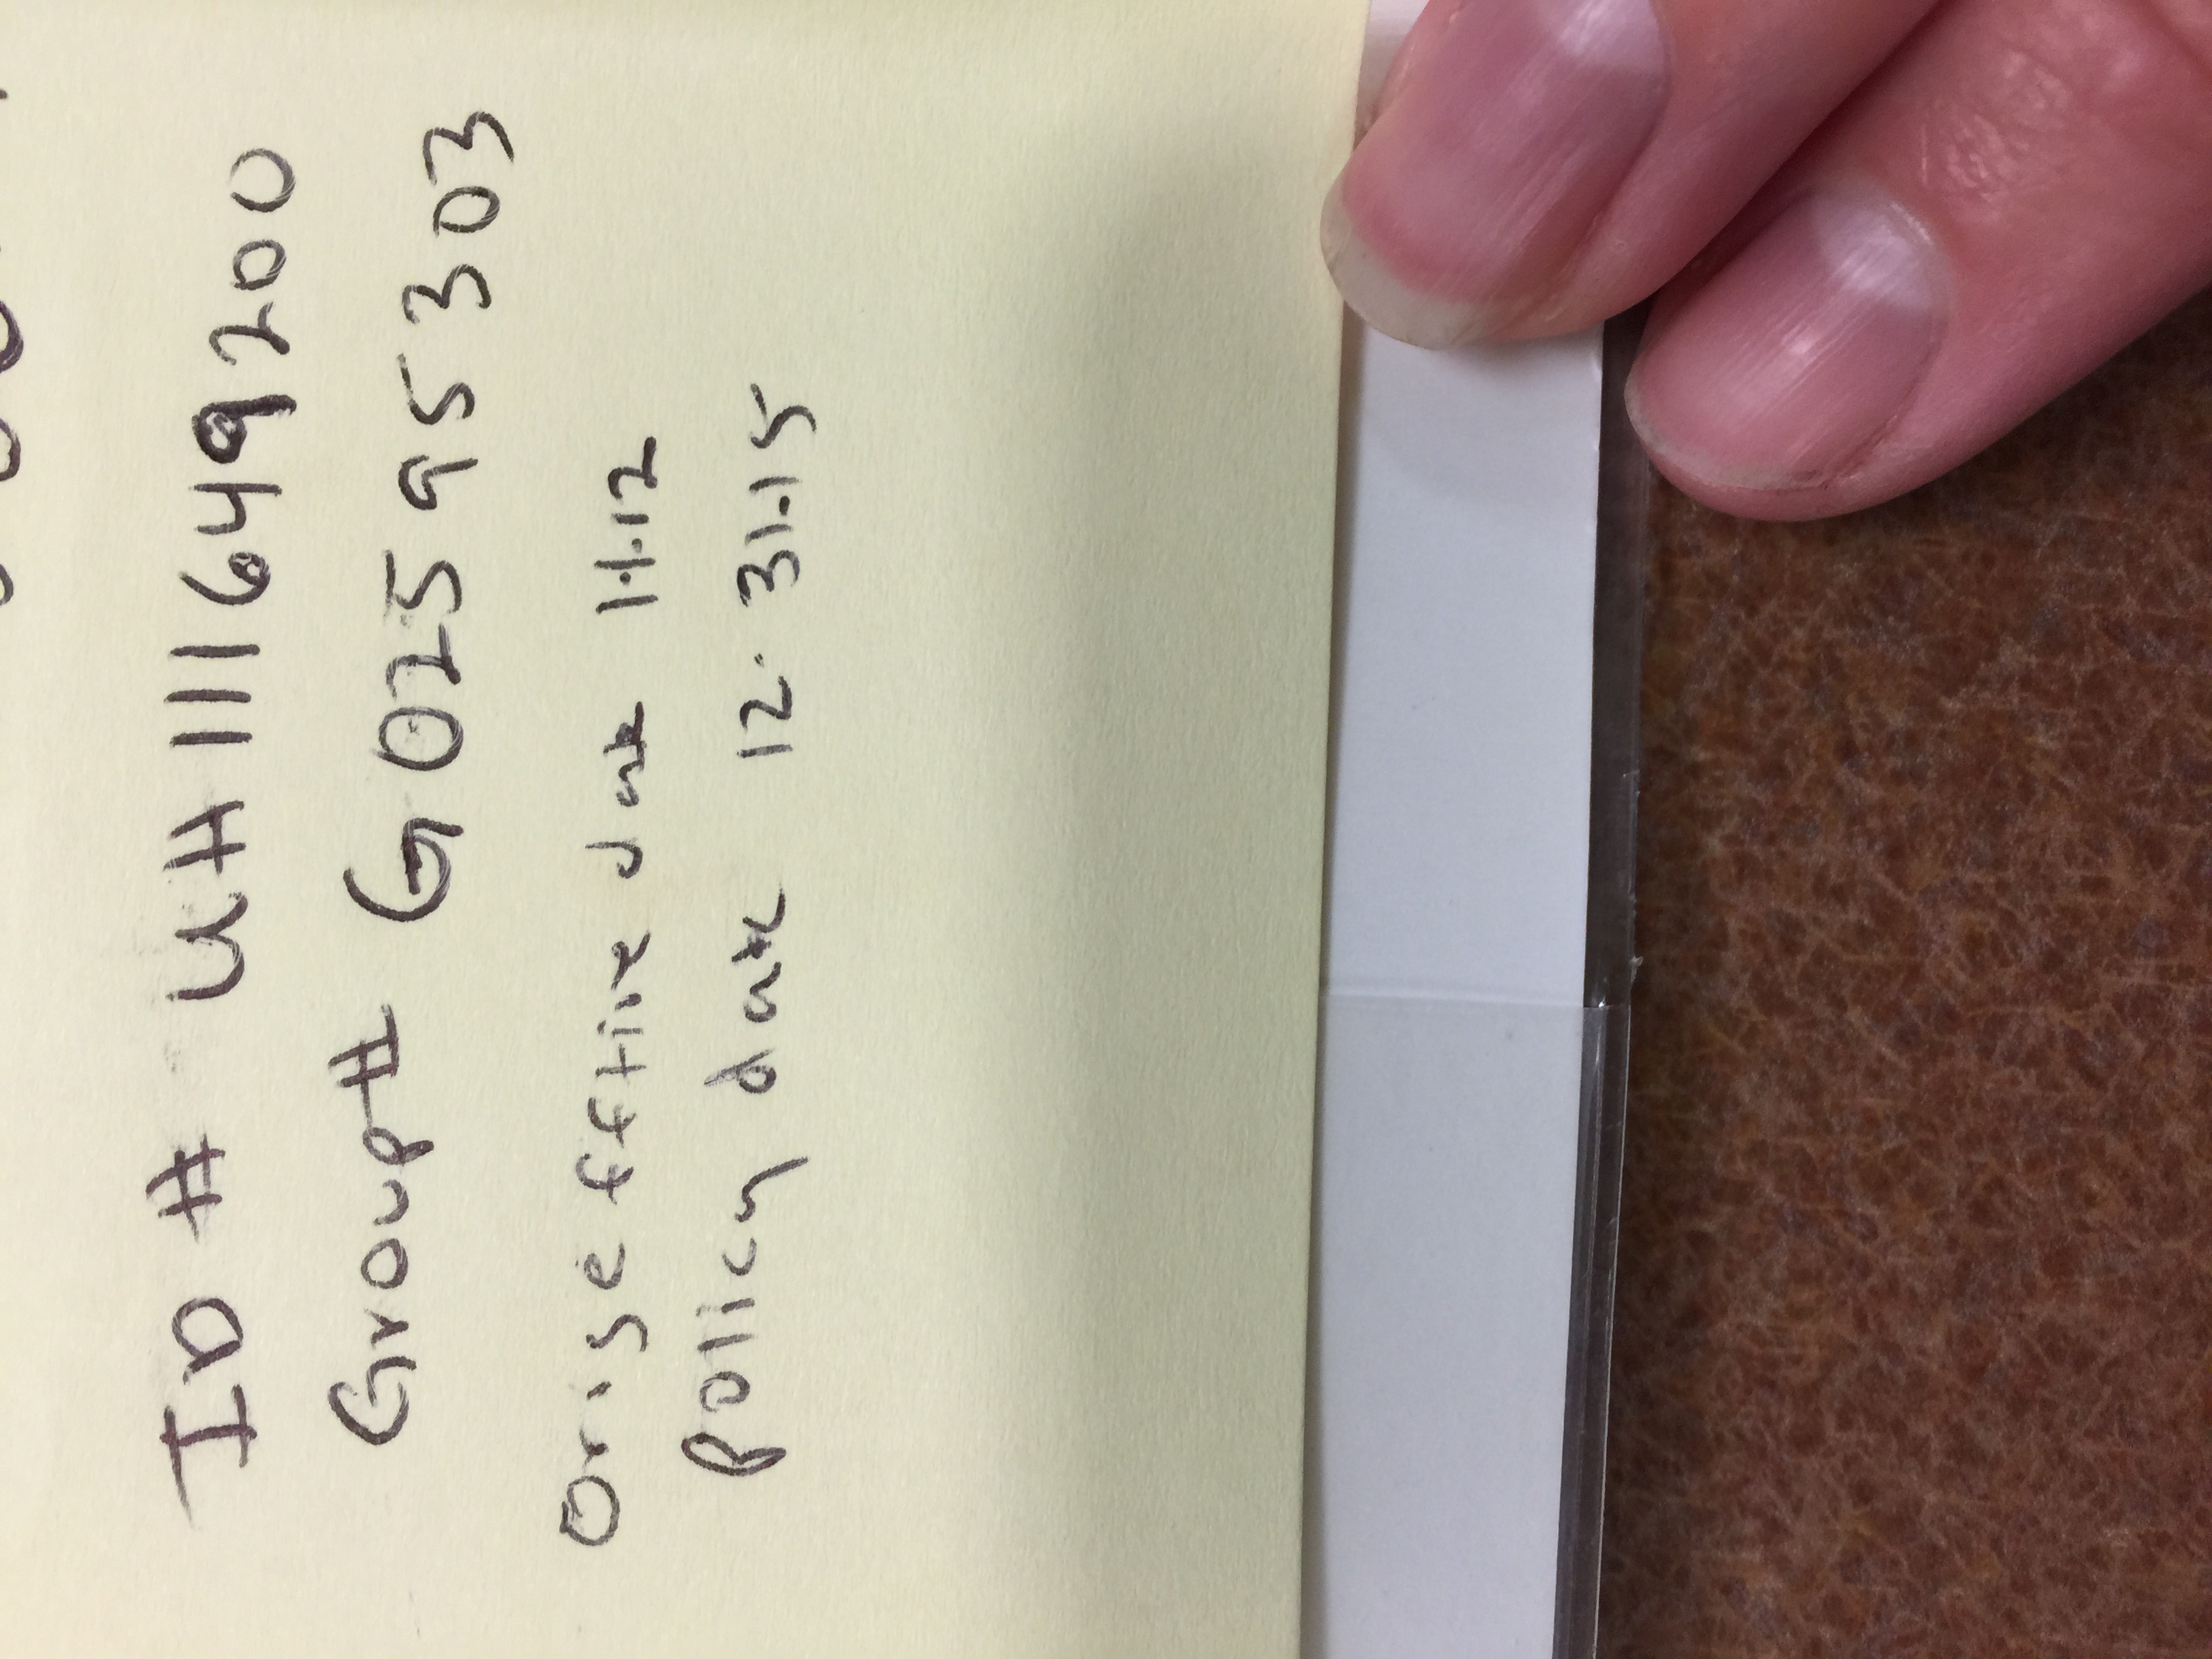 ID # UH111649200
Group# G02595303
Orig efftive date 1.1.12
Policy date 12.31.15